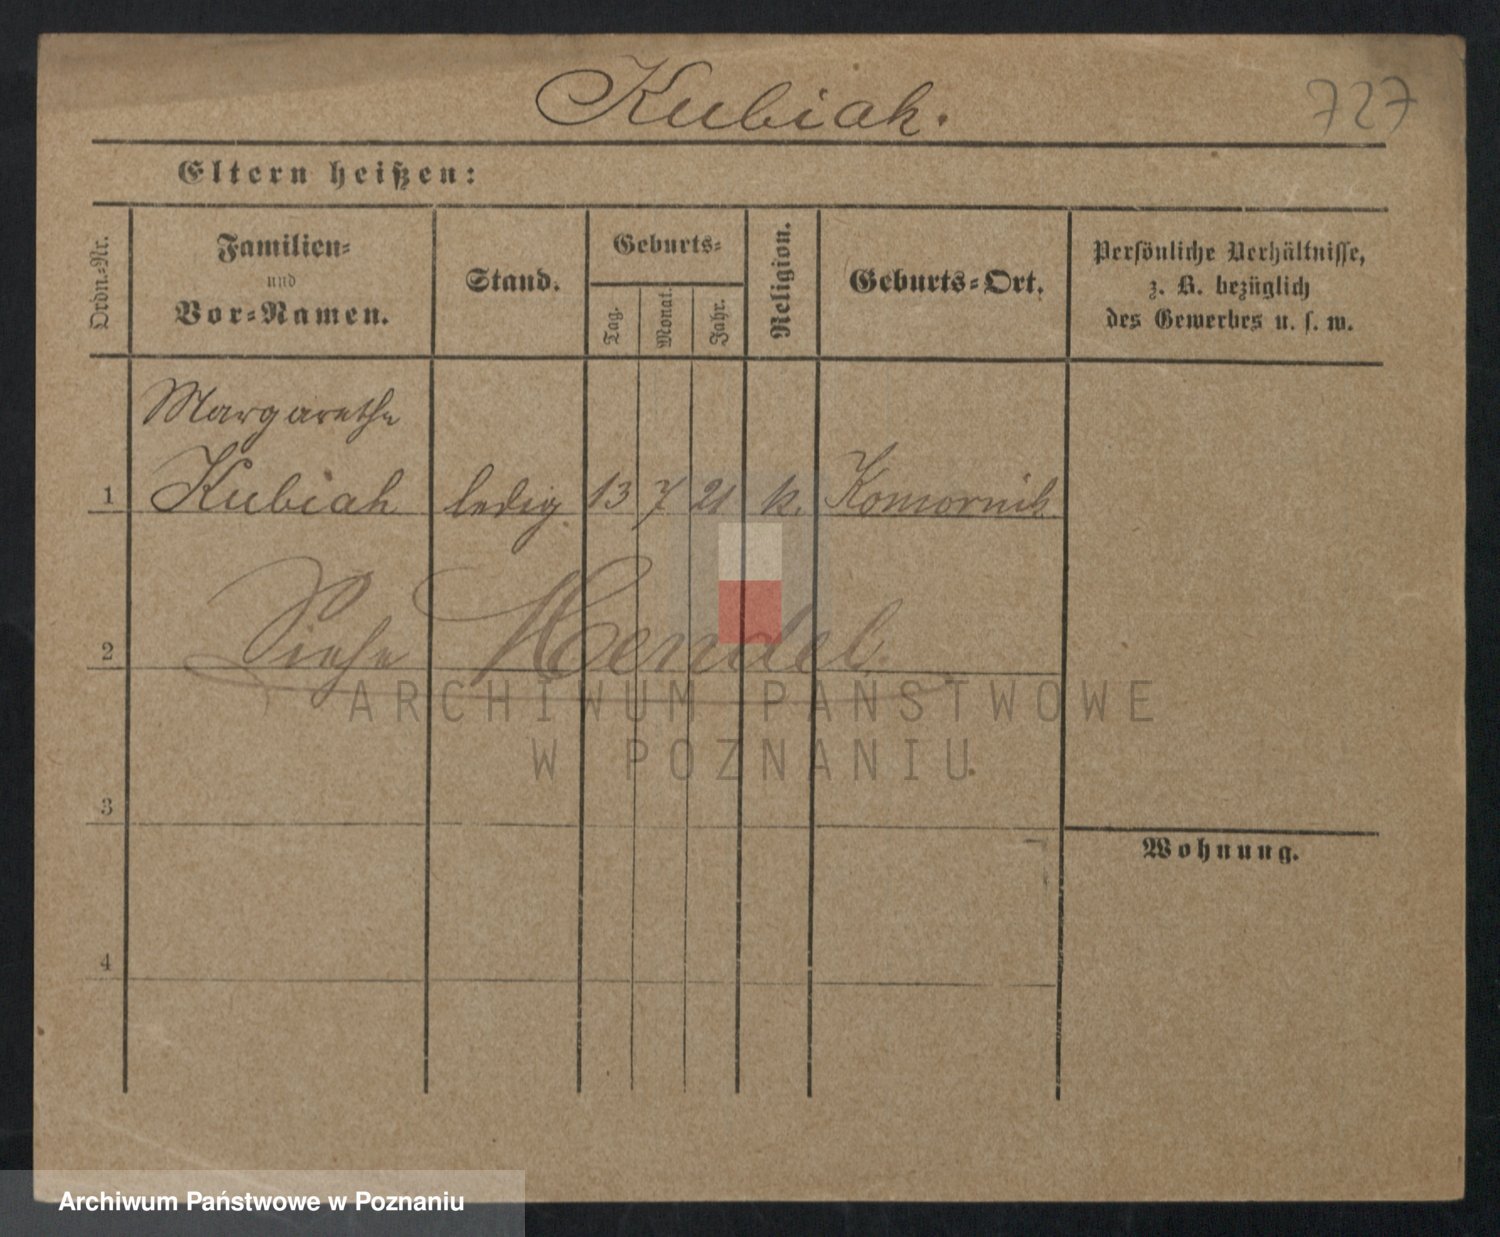 Kubiak.
727
Eltern heißen:
Ordn.-Nr.
Familien-
und
Vor-Namen.
Stand.
Geburts-
Tag.
Monat.
Jahr.
Religion.
Geburts-Ort.
Persönliche Verhältnisse,
z. B. bezüglich
des Gewerbes u. s. w.
Margarethe
1 Kubiak ledig 13 7 21 k. Komornik
2 Siehe Hendel.
ARCHIWUM PAŃSTWOWE
W POZNANIU
3
Wohnung.
4
Archiwum Państwowe w Poznaniu